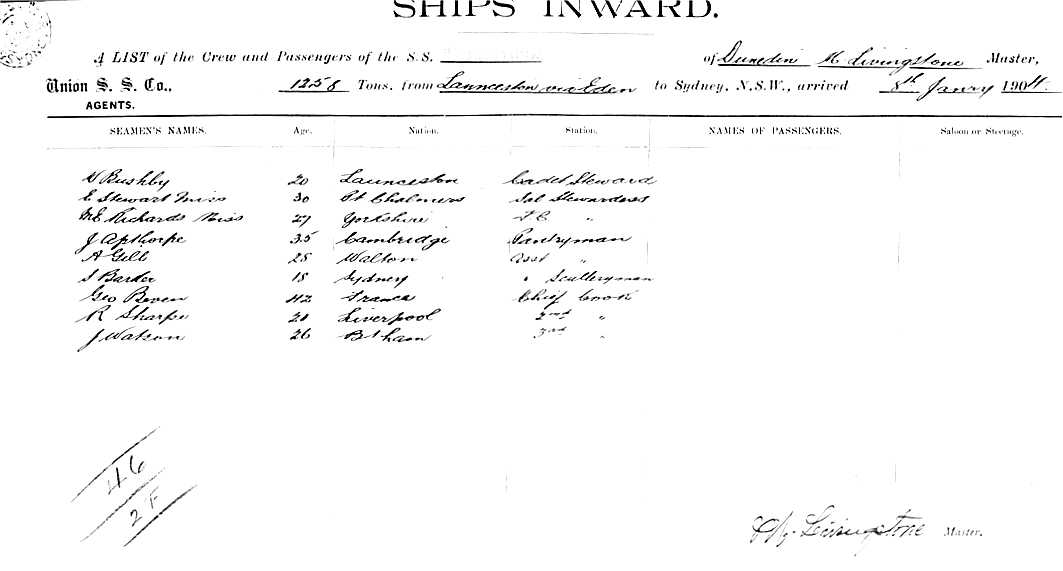 SHIPS INWARD.
A LIST of the Crew and Passengers of the S.S. of Dunedin H Livingstone Master,
Union S. S. Co., 1258 Tons, from Launceston via Eden to Sydney, N.S.W., arrived 8th Janry 1904.
AGENTS.
SEAMEN'S NAMES. Age. Nation. Station. NAMES OF PASSENGERS. Saloon or Steerage.
W Bushby 20 Launceston Cadet Steward
E Stewart Miss 30 Pt Chalmers Sal Stewardess
Richards Miss 27 Yorkshire "
J Apthorpe 35 Cambridge Pantryman
A Gell 25 Walton Asst "
S Barker 18 Sydney " Sculleryman
Geo Beven 42 France Chief Cook
R Sharpe 20 Liverpool 2nd "
J Watson 26 B'ham 3rd "
46
2 F
Livingstone Master.